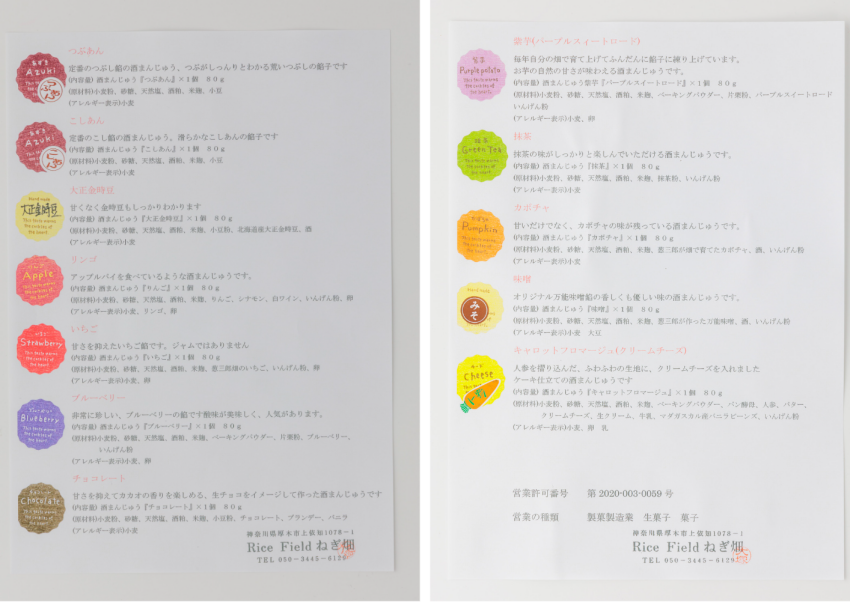 つぶあん
あずき
Azuki
つぶ
定番のつぶし餡の酒まんじゅう、つぶがしっんりとわかる荒いつぶしの餡子です
(内容量) 酒まんじゅう『つぶあん』×1個 80g
(原材料)小麦粉、砂糖、天然塩、酒粕、米麹、小豆
(アレルギー表示)小麦
こしあん
あずき
Azuki
こし
定番のこし餡の酒まんじゅう、滑らかなこしあんの餡子です
(内容量) 酒まんじゅう『こしあん』×1個 80g
(原材料)小麦粉、砂糖、天然塩、酒粕、米麹、小豆
(アレルギー表示)小麦
大正金時豆
大正金時豆
甘くなく金時豆もしっかりわかります
(内容量) 酒まんじゅう『大正金時豆』×1個 80g
(原材料)小麦粉、砂糖、天然塩、酒粕、米麹、小豆粉、北海道産大正金時豆、酒
(アレルギー表示)小麦
リンゴ
Apple
アップルパイを食べているような酒まんじゅうです。
(内容量) 酒まんじゅう『りんご』×1個 80g
(原材料)小麦粉、砂糖、天然塩、酒粕、米麹、りんご、シナモン、白ワイン、いんげん粉、卵
(アレルギー表示)小麦、リンゴ、卵
いちご
Strawberry
甘さを抑えたいちご餡です。ジャムではありません
(内容量) 酒まんじゅう『いちご』×1個 80g
(原材料)小麦粉、砂糖、天然塩、酒粕、米麹、恵三郎畑のいちご、いんげん粉、卵
(アレルギー表示)小麦、卵
ブルーベリー
Blueberry
非常に珍しい、ブルーベリーの餡です酸味が美味しく、人気があります。
(内容量) 酒まんじゅう『ブルーベリー』×1個 80g
(原材料)小麦粉、砂糖、天然塩、酒粕、米麹、ベーキングパウダー、片栗粉、ブルーベリー、
いんげん粉
(アレルギー表示)小麦、卵
チョコレート
Chocolate
甘さを抑えてカカオの香りを楽しめる、生チョコをイメージして作った酒まんじゅうです
(内容量) 酒まんじゅう『チョコレート』×1個 80g
(原材料)小麦粉、砂糖、天然塩、酒粕、米麹、小豆粉、チョコレート、ブランデー、バニラ
(アレルギー表示)小麦
神奈川県厚木市上依知1078-1
Rice Field ねぎ畑
TEL 050-3445-6129
紫芋(パープルスィートロード)
紫芋
Purplepotato
毎年自分の畑で育て上げてふんだんに餡子に練り上げています。
お芋の自然の甘さが味わえる酒まんじゅうです。
(内容量) 酒まんじゅう紫芋『パープルスイートロード』×1個 80g
(原材料)小麦粉、砂糖、天然塩、酒粕、米麹、ベーキングパウダー、片栗粉、パープルスイートロード
いんげん粉
(アレルギー表示)小麦、卵
抹茶
抹茶
Green Tea
抹茶の味がしっかりと楽しんでいただける酒まんじゅうです。
(内容量) 酒まんじゅう『抹茶』×1個 80g
(原材料)小麦粉、砂糖、天然塩、酒粕、米麹、抹茶粉、いんげん粉
(アレルギー表示)小麦
カボチャ
Pumpkin
甘いだけでなく、カボチャの味が残っている酒まんじゅうです。
(内容量) 酒まんじゅう『カボチャ』×1個 80g
(原材料)小麦粉、砂糖、天然塩、酒粕、米麹、恵三郎が畑で育てたカボチャ、酒、いんげん粉
(アレルギー表示)小麦
味噌
みそ
オリジナル万能味噌餡の香しくも優しい味の酒まんじゅうです。
(内容量) 酒まんじゅう『味噌』×1個 80g
(原材料)小麦粉、砂糖、天然塩、酒粕、米麹、恵三郎が作った万能味噌、酒、いんげん粉
(アレルギー表示)小麦 大豆
キャロットフロマージュ(クリームチーズ)
チーズ
Cheese
人参を摺り込んだ、ふわふわの生地に、クリームチーズを入れました
ケーキ仕立ての酒まんじゅうです
(内容量) 酒まんじゅう『キャロットフロマージュ』×1個 80g
(原材料)小麦粉、砂糖、天然塩、酒粕、米麹、ベーキングパウダー、パン酵母、人参、バター、
クリームチーズ、生クリーム、牛乳、マダガスカル産バニラビーンズ、いんげん粉
(アレルギー表示)小麦、卵 乳
営業許可番号 第 2020-003-0059 号
営業の種類 製菓製造業 生菓子 菓子
神奈川県厚木市上依知1078-1
Rice Field ねぎ畑
TEL 050-3445-6129